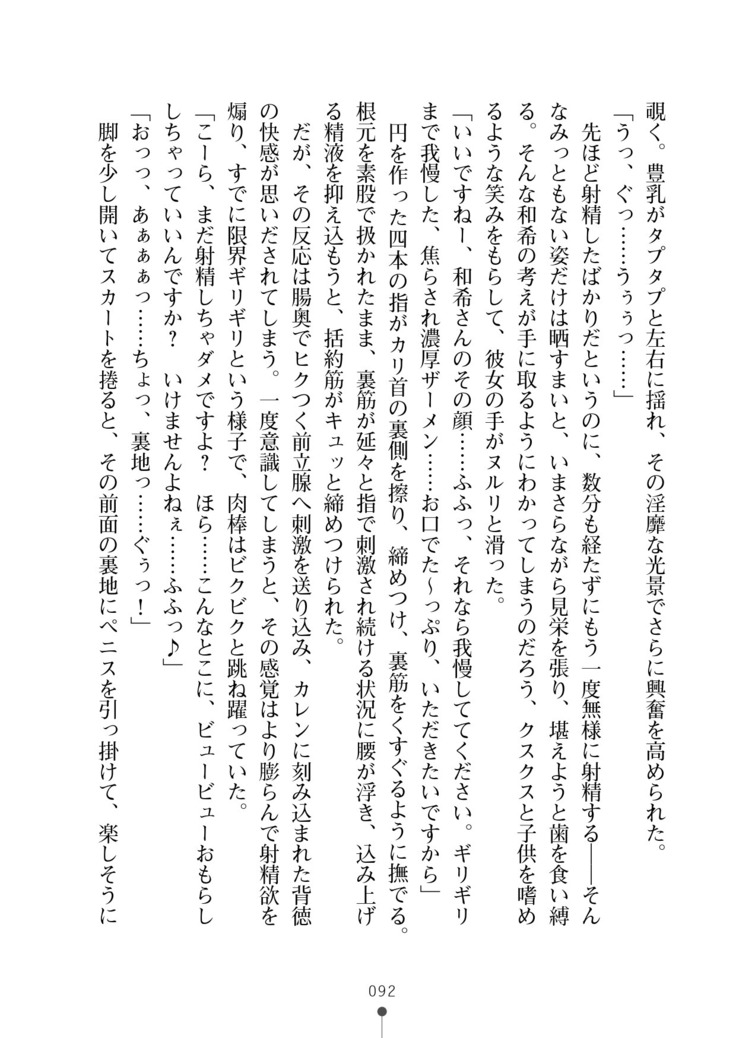 覗く。豊乳がタプタプと左右に揺れ、その淫靡な光景でさらに興奮を高められた。
「うっ、ぐっ……うぅぅっ……」
先ほど射精したばかりだというのに、数分も経たずにもう一度無様に射精する――そん
なみっともない姿だけは晒すまいと、いまさらながら見栄を張り、堪えようと歯を食い縛
る。そんな和希の考えが手に取るようにわかってしまうのだろう、クスクスと子供を嗜め
るような笑みをもらして、彼女の手がヌルリと滑った。
「いいですねー、和希さんのその顔……ふふっ、それなら我慢しててください。ギリギリ
まで我慢した、焦らされ濃厚ザーメン……お口でた～っぷり、いただきたいですから」
円を作った四本の指がカリ首の裏側を擦り、締めつけ、裏筋をくすぐるように撫でる。
根元を素股で扱かれたまま、裏筋が延々と指で刺激され続ける状況に腰が浮き、込み上げ
る精液を抑え込もうと、括約筋がキュッと締めつけられた。
だが、その反応は腸奥でヒクつく前立腺へ刺激を送り込み、カレンに刻み込まれた背徳
の快感が思いだされてしまう。一度意識してしまうと、その感覚はより膨らんで射精欲を
煽り、すでに限界ギリギリという様子で、肉棒はビクビクと跳ね躍っていた。
「こーら、まだ射精しちゃダメですよ？　ほら……こんなとこに、ビュービューおもらし
しちゃっていいんですか？　いけませんよねぇ……ふふっ♪」
「おっっ、あぁぁぁっ……ちょっ、裏地っ……ぐぅっ！」
脚を少し開いてスカートを捲ると、その前面の裏地にペニスを引っ掛けて、楽しそうに
092